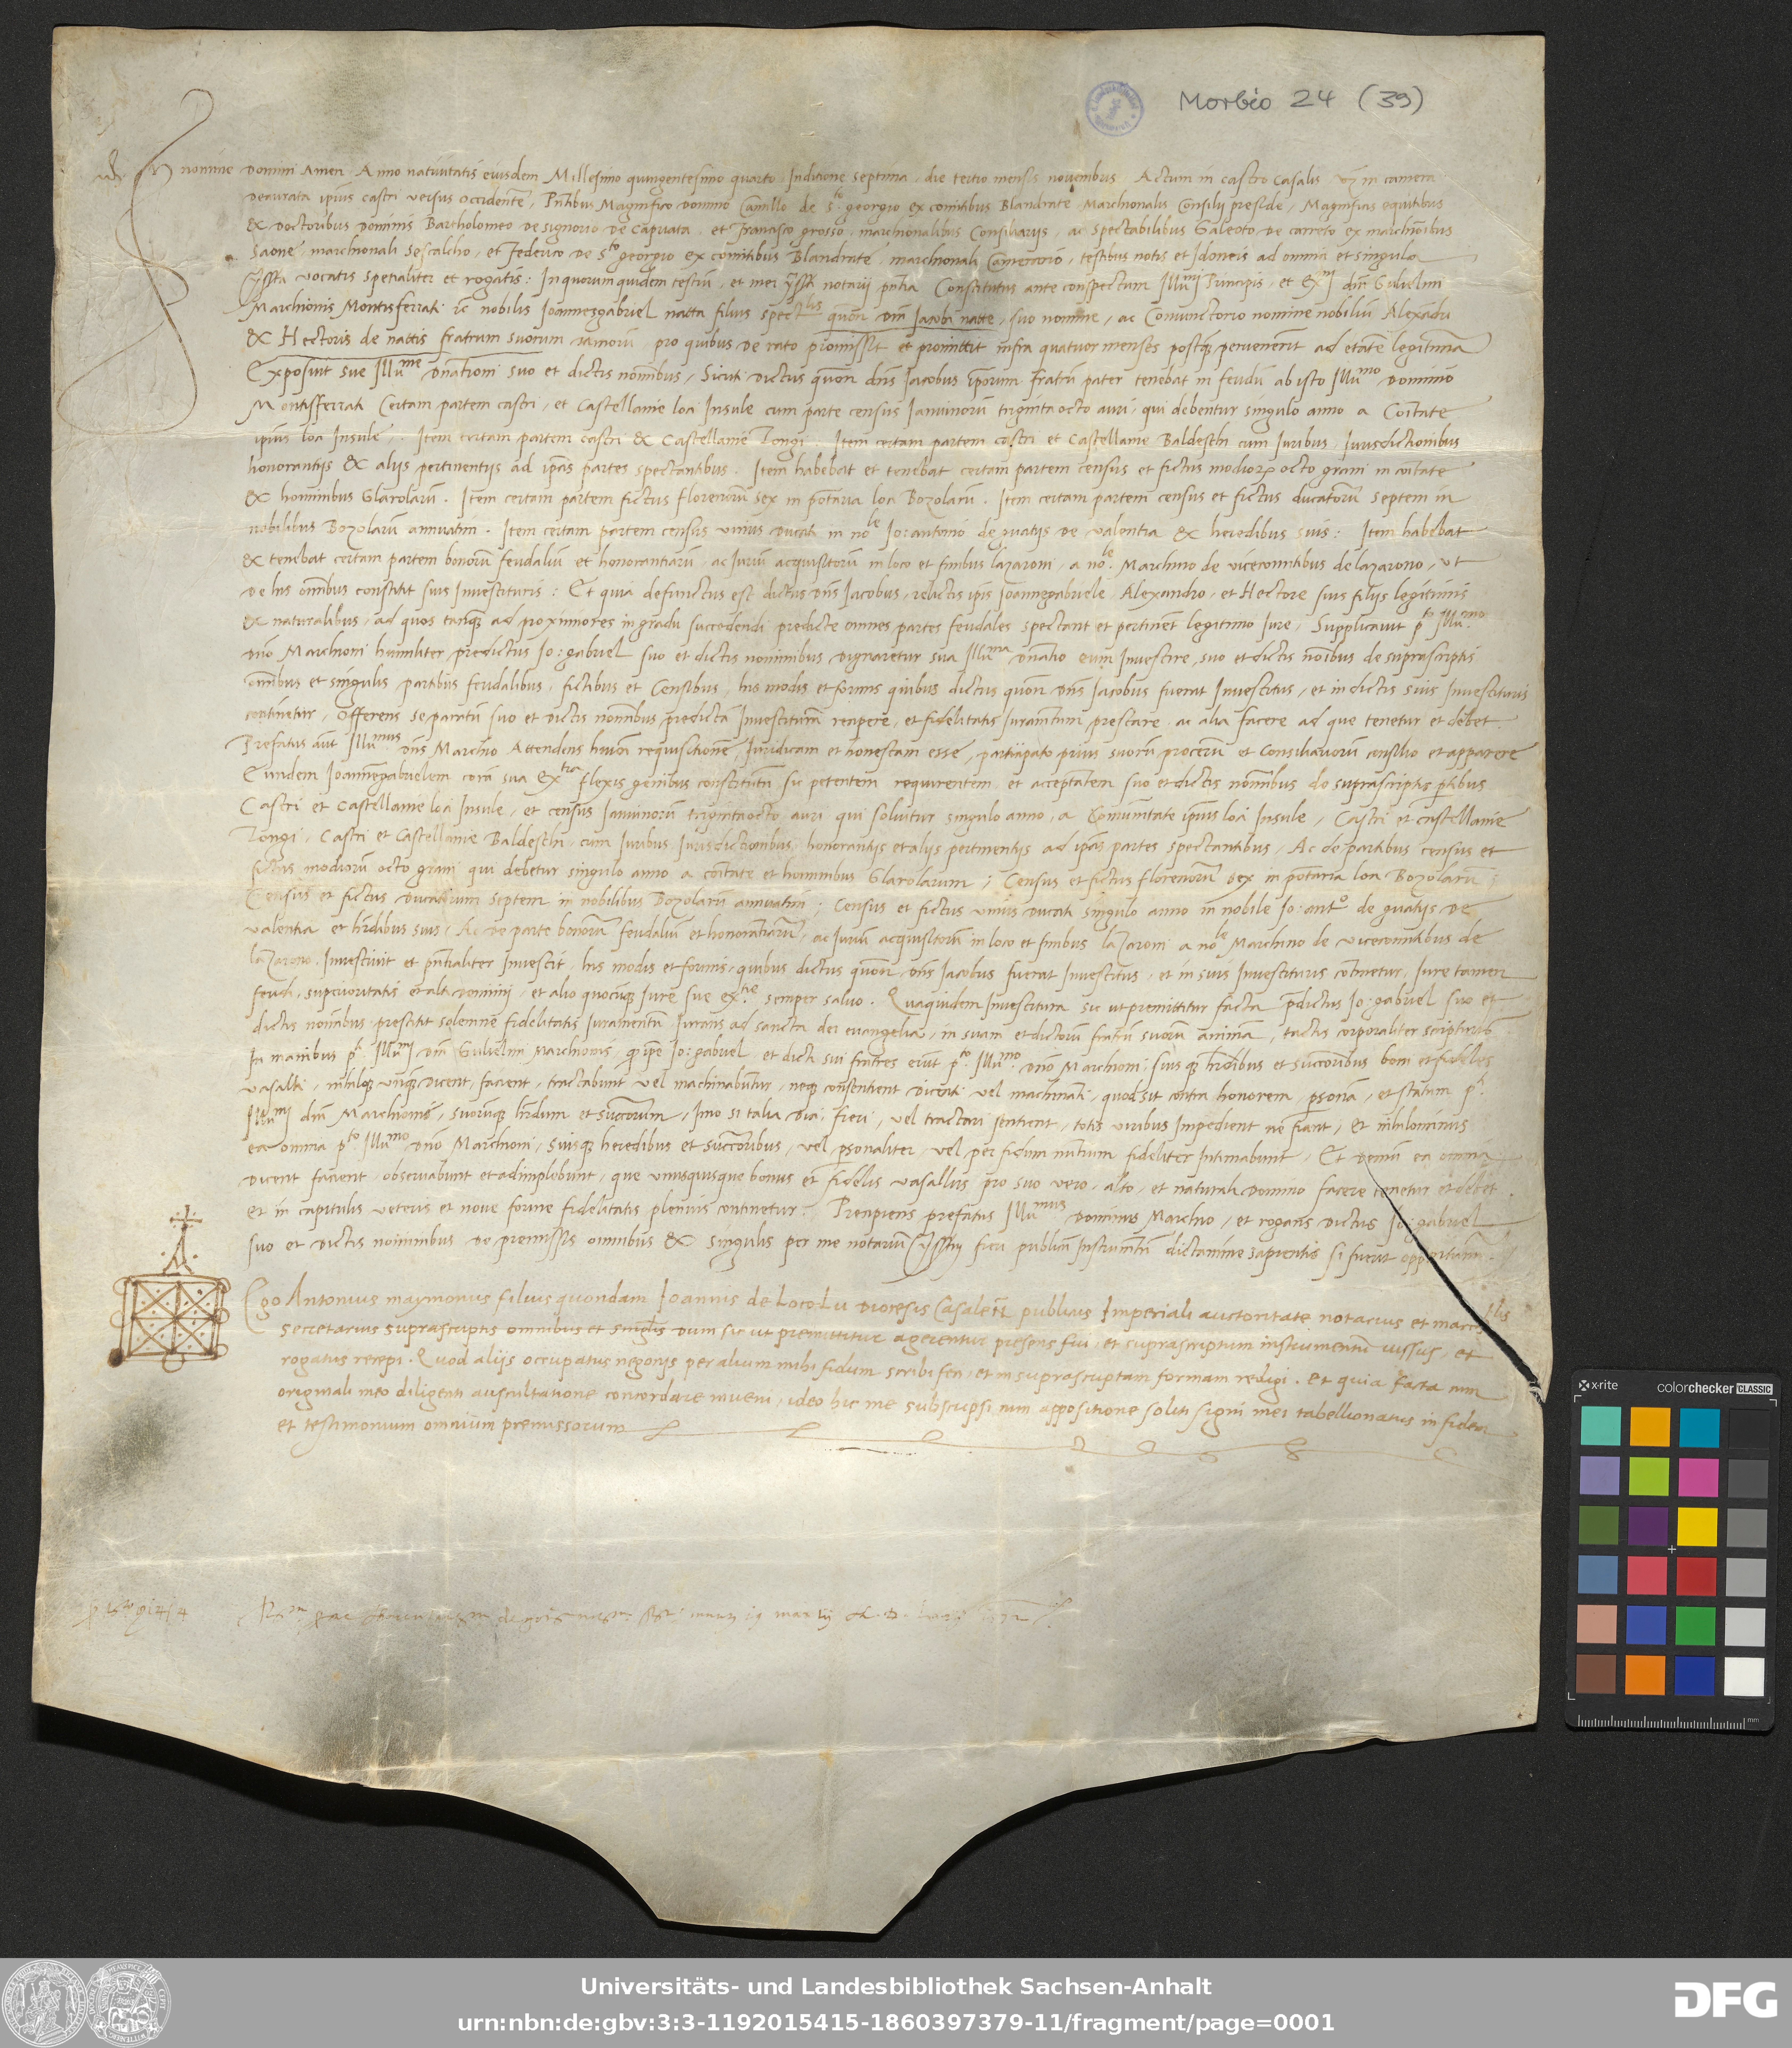 Morbio 24 (39)
In nomine Domini Amen. Anno nativitatis eiusdem Millesimo quingentesimo quarto Inditione septima, die tertio mensis novembris Actum in castro Casalis vz in camera
deaurata ipius castri versus occidentē, Pntibus Magnifico Domino Camillo de S.to georgio ex comitibus Blandrate Marchionalis Consilij preside, Magnificis equitibus
& Doctoribus Dominis Bartholomeo de signorio de Capriata, et Francisco grosso, marchionalibus Consiliariis, ac spectabilibus Galeoto de carreto ex marchionibus
Saone, marchionali Sescalcho, et Federico de S.to georgio ex comitibus Blandrate, marchionali Camerario, testibus notis et Idoneis ad omnia et singula
vocatis specialiter et rogatis: In quorum quidem testiū, et mei notarij pntia Constitutus ante conspectum Illu.mi Principis, et Ex.mi dni Gulielmi
Marchionis Montisferrati &c nobilis Joannesgabriel natta filius spect.lis quon dni Jacobi natte, suo nomine, ac Coniunctorio nomine nobiliū Alexādri
& Hectoris de nattis fratrum suorum pro quibus de rato promissit et promittit infra quatuor menses postq̄ pervenerit ad etatē legitimā
Exposuit sue Illu.me Dnationi suo et dictis noibus, Sicuti dictus quon dnis Jacobus iporum fratrū pater tenebat in feudū ab isto Illu.mo Domino
Montisferrati Certam partem castri, et Castellanie loci Insule cum parte census Ianuinorū triginta octo auri, qui debentur singulo anno a Coitate
ipius loci Insule. Item certam partem castri & Castellanie Longi. Item certam partem castri et Castellanie Baldeschi cum Iuribus Iurisdictionibus
honorantijs & alijs pertinentijs ad ipas partes spectantibus. Item habebat et tenebat certam partem census et fictus modiorū octo grani in coitate
& hominibus Glarolarū. Item certam partem fictus florenorū sex in potaria loci Bozolarū. Item certam partem census et fictus ducatorū septem in
nobilibus Bozolarū annuatim. Item certam partem census unius Ducati in no.le Io: antonio de guatijs de valentia & heredibus suis: Item habebat
& tenebat certam partem bonorū feudaliū et honorantiarū, ac Iuriū acquisitorū in loco et finibus lazaroni, a no.le Marchino de vicecomitibus de lazarono, ut
de his omibus constitit suis Investituris: Et quia defunctus est dictus Dnis Jacobus, relictis ipis Joannegabriele Alexandro, et Hectore suis filijs legitimis
& naturalibus, ad quos tanq̄ ad proximiores in gradu succedendi predicte omnes partes feudales spectant et pertinēt legitimo Iure, Supplicavit p.to Illu.mo
dno Marchioni humiliter predictus Io: gabriel suo et dictis nominibus dignaretur sua Illu.ma Dnatio eum Investire, suo et dictis noibus de suprascriptis
omibus et singulis partibus feudalibus, fictibus et Censibus, his modis et formis quibus dictus quon dnis Jacobus fuerat Investitus, et in dictis suis Investituris
continetur, Offerens se paratū suo et dictis noibus predictā Investiturā recipere, et fidelitatis Iuramtum prestare, ac alia facere ad que tenetur et debet.
Prefatus aut Illu.mus dns Marchio Attendens hmoi requisitionē, Iuridicam et honestam esse, participato prius suorū procerū et Consiliariorū consilio et apparere
Eundem Ioannēgabrielem corā sua Ex.tia flexis genibus constitutū sic petentem requirentem et acceptātem suo et dictis noibus de suprascriptis ptibus
Castri et Castellanie loci Insule, et census Ianuinorū triginta octo auri qui solvitur singulo anno, a Comunitate ipius loci Insule, Castri et castellanie
Longi, Castri et Castellanie Baldeschi, cum Iuribus Iurisdictionibus, honorantijs et alijs pertinentijs ad ipas partes spectantibus, Ac de partibus census et
fictus modiorū octo grani qui debetur singulo anno a coitate et hominibus Glarolarum; Census et fictus florenorū sex in potaria loci Bozolarū;
Census et fictus Ducatorum septem in nobilibus Bozolarū annuatim; Census et fictus unius Ducati singulo anno in nobile Io: ant.o de guatijs de
valentia et hrdibus suis, Ac de parte bonorū feudaliū et honorantiarū, ac Iuriū acquisitorū in loco et finibus lazaroni a no.le Marchino de vicecomitibus de
lazarono. Investivit et pntialiter Investit, his modis et formis, quibus dictus quon dnis Jacobus fuerat Investitus, et in suis Investituris cotinetur, Iure tamen
feudi, superioritatis et alti dominij, et alio quocūq Iure sue ex.tie semper salvo. Quaquidem Investitura sic ut premittitur facta predictus Io: gabriel suo et
dictis noibus prestitit solemne fidelitatis Iuramentū Iurans ad sancta dei evangelia, in suam et dictorū fratrū suorū animā, tactis corporaliter scripturis
In manibus p.ti Illu.mi dni Gulielmi Marchionis, q ipe Io: gabriel, et dicti sui fratres erūt p.to Illu.mo dno Marchioni, suisq hrdibus et succoribus boni et fideles
vasalli, nihilq unq̄ dicent, facient, tractabunt vel machinabūtur, neq consentient dicenti vel machinati, quod sit contra honorem personā, et statum p.ti
Illu.mi dni Marchionis, suorūq hrdum et succorum, Imo si talia dici, fieri, vel tractari sentient, totis viribus Impedient ne fiant, et nihilominus
ea omnia p.to Illu.mo dno Marchioni, suisq heredibus et succoribus, vel psonaliter, vel per fidum nūtium fideliter Intimabunt. Et demū ea omia
dicent facient observabunt et adimplebunt, que unusquisque bonus et fidelis vasallus pro suo vero, alto, et naturali Domino facere tenetur et debet.
et in capitulis veteris et nove forme fidelitatis plenius continetur. Precipiens prefatus Illu.mus Dominus Marchio, et rogans dictus Io: gabriel
suo et dictis noiminibus de premissis omnibus & singulis per me notariū fieri publicū Instrumtū dictamine sapientis si fuerit opportunū.
Ego Antonius maymonus filius quondam Joannis de Loco Lu diocesis Casaleñ publicus Imperiali auctoritate notarius et march.lis
secretarius suprascriptis omnibus et singulis dum sic ut premittitur agerentur presens fui, et suprascriptum instrumentū iussus, et
rogatus recepi. Quod alijs occupatus negocijs per alium mihi fidum scribi feci, et in suprascriptam formam redigi. et quia facta cum
originali meo diligenti auscultatione concordare inveni, ideo hic me subscripsi cum appositione soliti signi mei tabellionatus in fidem
et testimonium omnium premissorum
Universitäts- und Landesbibliothek Sachsen-Anhalt
urn:nbn:de:gbv:3:3-1192015415-1860397379-11/fragment/page=0001
DFG
x-rite
colorchecker CLASSIC
mm